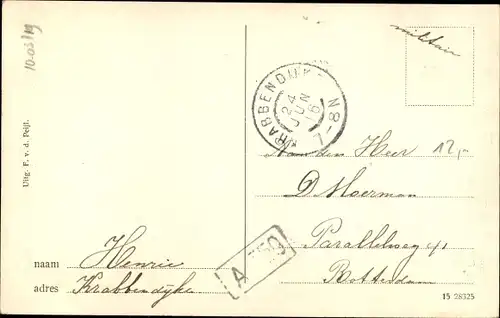 10-03/19
militair
KRABBENDIJKE
24
JUN
16
7-8 N
Aan den Heer 12,-
D Moerman
Parallelweg 41
Rotterdam
Uitg. F. v. d. Peijl.
naam Henrie
adres Krabbendijke
A
15 28325